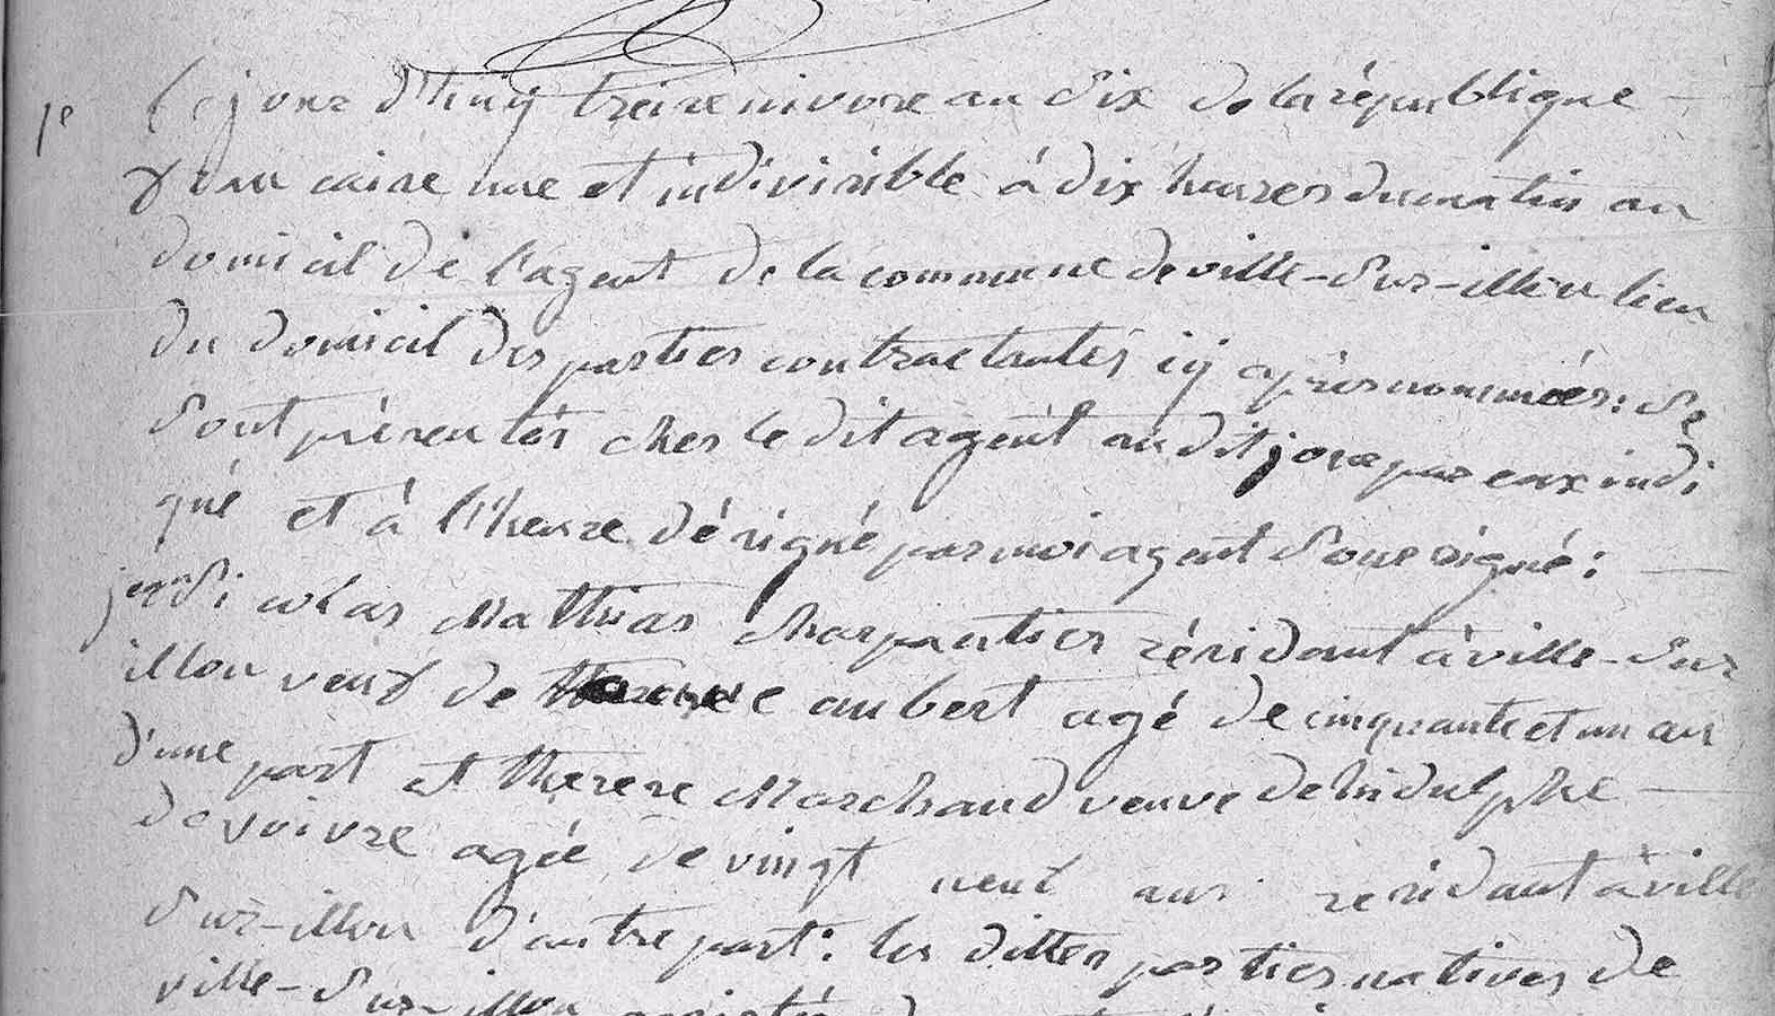 le jour d'huij treize nivose an Six de la république
francaise une et indivisible à dix heures du matin au
domicil de l'agent de la commune de ville-Sur-illon lieu
du domicil des parties contractantes icij après nommées: Se
Sont présentés ches le dit agent audit jour par eux indi
qué et à l'heure désigné par moi agent Sousigné:
colas Mathias Charpentier résidant à ville-Sur
illon veuf de therese aubert agé de cinquante et un an
d'une part et therese Marchand veuve de hidulphe
devoivre agée de vingt neuf ans residant à ville
Sur-illon d'autre part: les dittes parties natives de
ville-Sur-illon